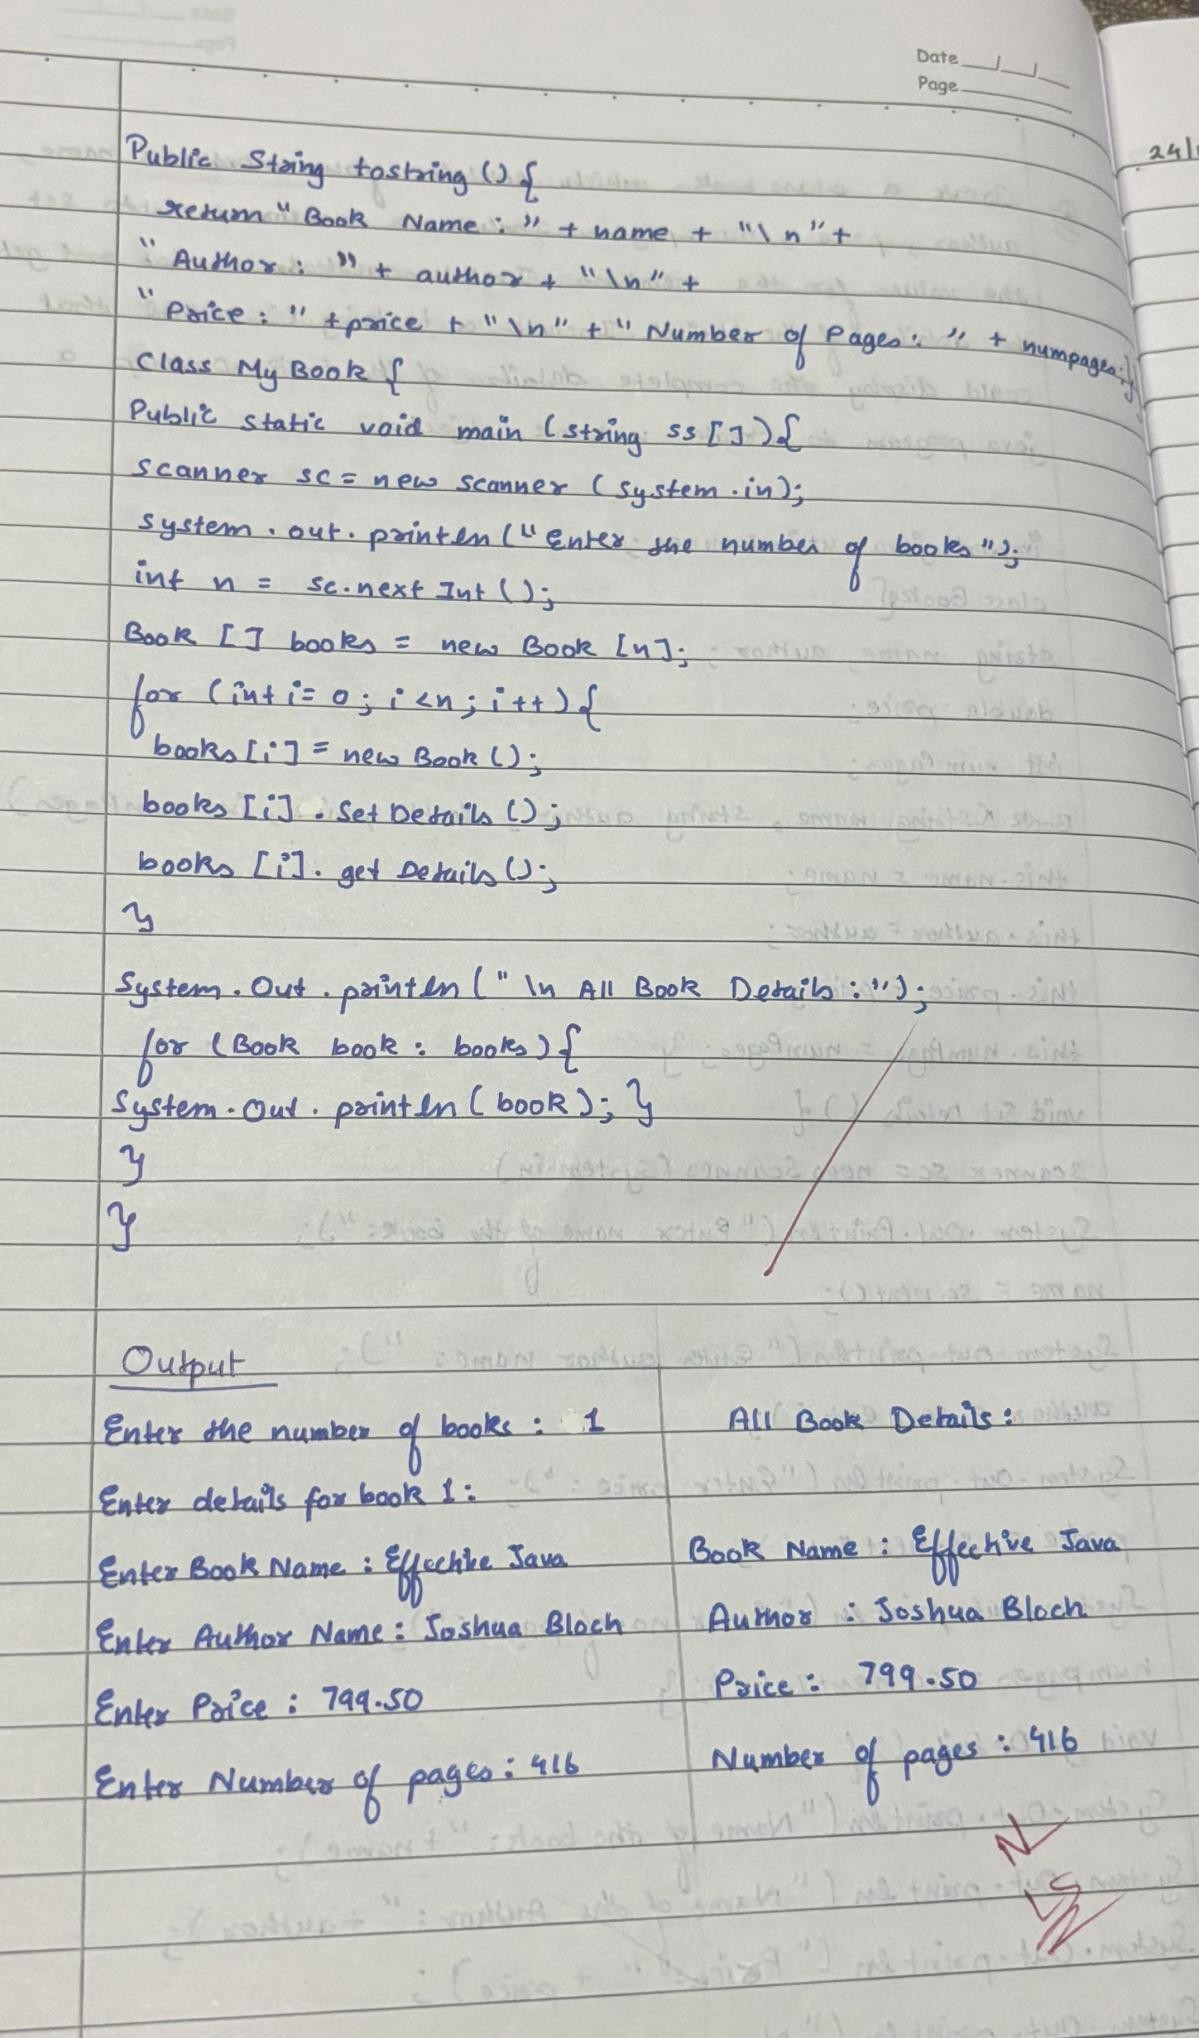 Date
Page
24/
Public String tostring () {
return " Book Name : " + name + "\n" +
" Author : " + author + "\n" +
" Price : " + price + "\n" + " Number of Pages : " + numpages; }
Class My Book {
Public static void main (string ss [ ]) {
scanner sc = new scanner ( system.in);
system.out.println (" Enter the number of books ");
int n = sc.next Int ();
Book [ ] books = new Book [n];
for (int i = 0; i < n; i++) {
books [i] = new Book ();
books [i] . Set Details ();
books [i] . get Details ();
}
System. Out . println (" \n All Book Details : ");
for (Book book : books) {
System. Out . println ( book ); }
}
}
Output
Enter the number of books : 1
Enter details for book 1 :
Enter Book Name : Effective Java
Enter Author Name : Joshua Bloch
Enter Price : 799.50
Enter Number of pages : 416
All Book Details :
Book Name : Effective Java
Author : Joshua Bloch
Price : 799.50
Number of pages : 416